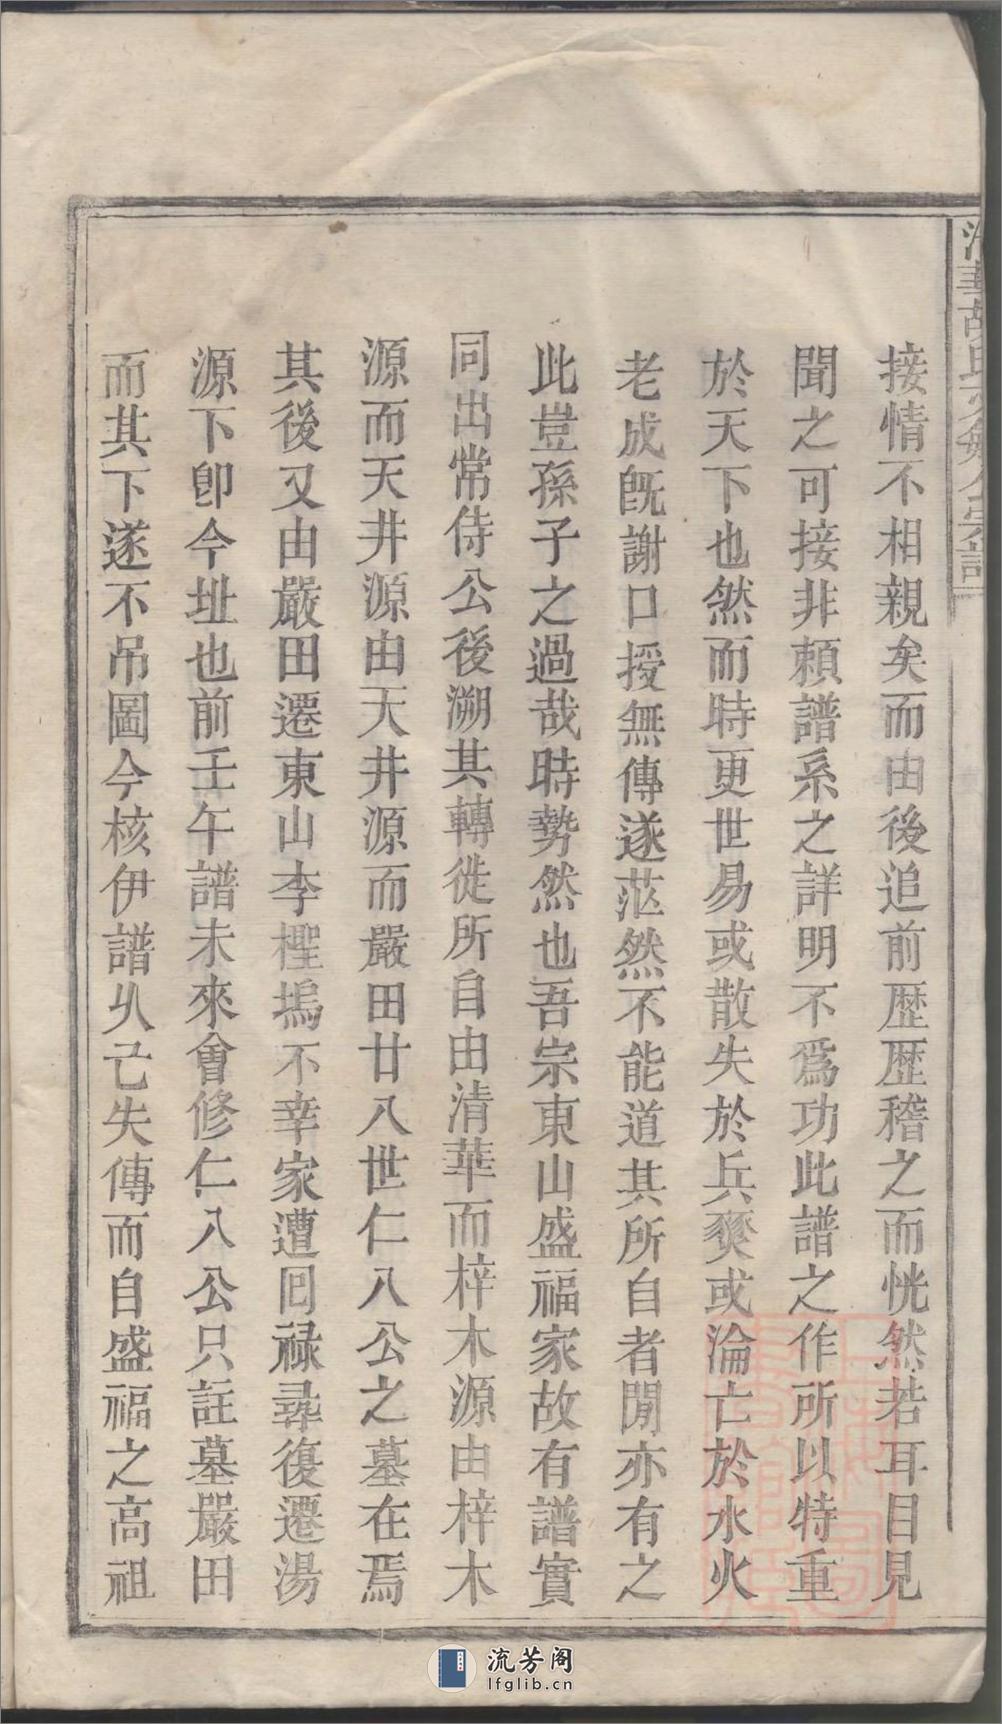 接情不相親矣而由後追前歷歷稽之而恍然若耳目見
聞之可接非賴譜系之詳明不爲功此譜之作所以特重
於天下也然而時更世易或散失於兵燹或淪亡於水火
老成旣謝口授無傳遂茫然不能道其所自者間亦有之
此豈孫子之過哉時勢然也吾宗東山盛福家故有譜實
同出常侍公後溯其轉徙所自由清華而梓木源由梓木
源而天井源由天井源而嚴田廿八世仁八公之墓在焉
其後又由嚴田遷東山李樫塢不幸家遭囘祿尋復遷湯
源下卽今址也前壬午譜未來會修仁八公只註墓嚴田
而其下遂不吊圖今核伊譜乆已失傳而自盛福之高祖
流芳阁
lfglib.cn